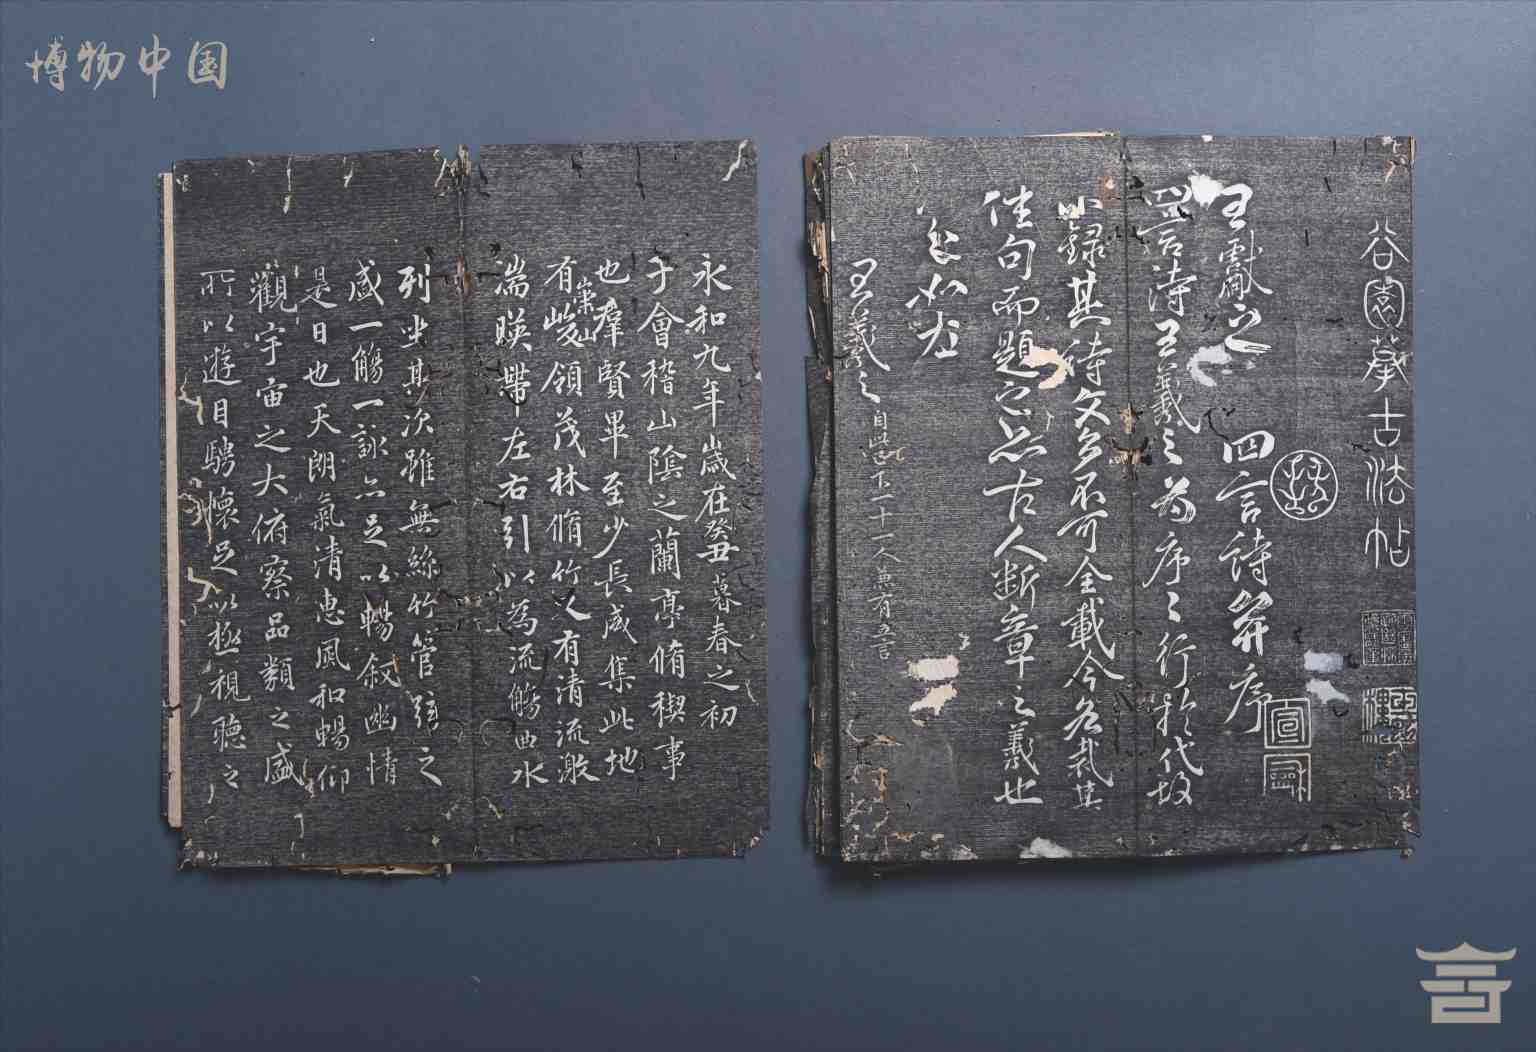 博物中国
谷園摹古法帖
王獻之 四言詩并序
四言詩王羲之為序〻行於代故
不錄其詩文多不可全載今各裁其
佳句而題之亦古人斷章之義也
如左
王羲之 自此已下一十一人兼有五言
永和九年歲在癸丑暮春之初
于會稽山陰之蘭亭脩稧事
也羣賢畢至少長咸集此地
有崇山峻領茂林脩竹又有清流激
湍暎帶左右引以為流觴曲水
列坐其次雖無絲竹管弦之
盛一觴一詠亦足以暢叙幽情
是日也天朗氣清惠風和暢仰
觀宇宙之大俯察品類之盛
所以遊目騁懷足以極視聽之